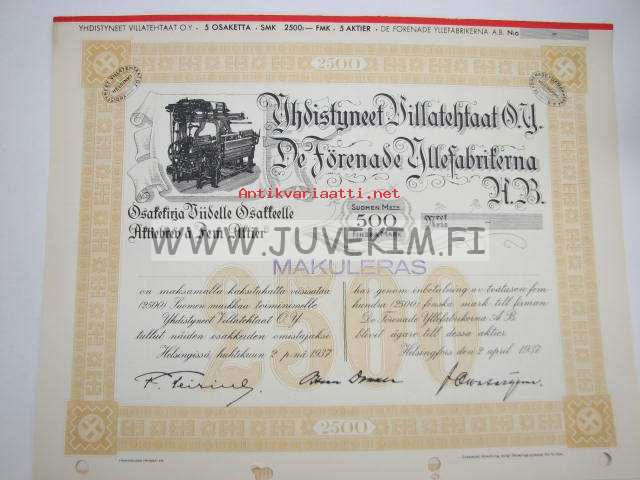 YHDISTYNEET VILLATEHTAAT O.Y - 5 OSAKETTA - SMK 2500:— FMK - 5 AKTIER - DE FÖRENADE YLLEFABRIKERNA A.B. No
2500
Yhdistyneet Villatehtaat O.Y.
De Förenade Yllefabrikerna
A.B.
Antikvariaatti.net
Osakekirja Viidelle Osakkeelle
Aktiebrev à Fem Aktier
SUOMEN MKAA
500
FINSKA MARK
WWW.JUVEKIM.FI
MAKULERAS
2500
on maksamalla kaksituhatta viisisataa
(2500) Suomen markkaa toiminimelle
Yhdistyneet Villatehtaat O.Y.
tullut näiden osakkeiden omistajaksi.
Helsingissä, huhtikuun 2 p:nä 1937
har genom inbetalning av tvåtusen fem
hundra (2500) finska mark till firman
De Förenade Yllefabrikerna A.B.
blivit ägare till dessa aktier.
Helsingfors den 2 april 1937
2500